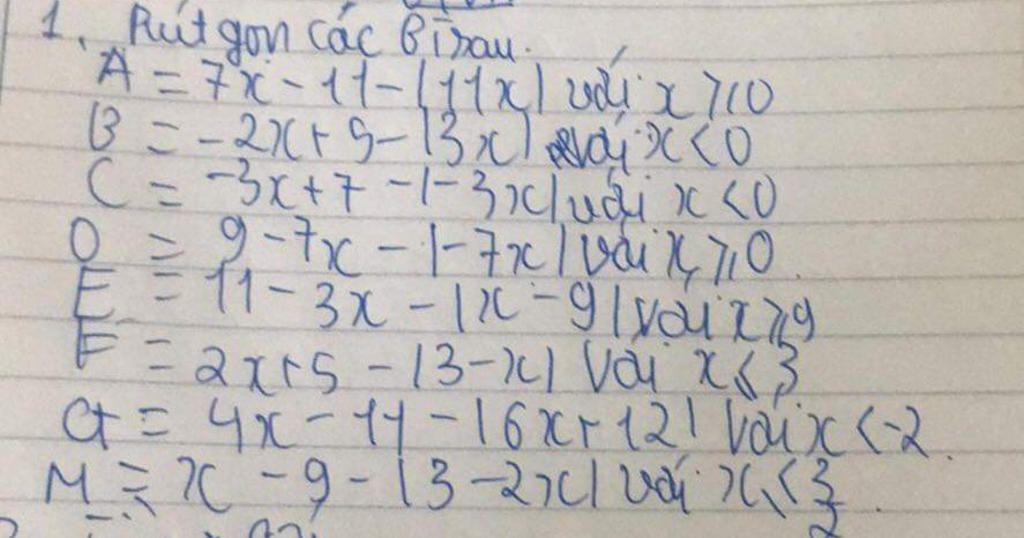 1. Rút gọn các BT sau.
A = 7x - 11 - |11x| với x ≥ 0
B = -2x + 9 - |3x| với x < 0
C = -3x + 7 - |-3x| với x < 0
D = 9 - 7x - |-7x| với x ≥ 0.
E = 11 - 3x - |x - 9| với x ≥ 9
F = 2x + 5 - |3 - x| với x ≤ 3
G = 4x - 11 - |6x + 12| với x < -2.
M = x - 9 - |3 - 2x| với x < 3/2.